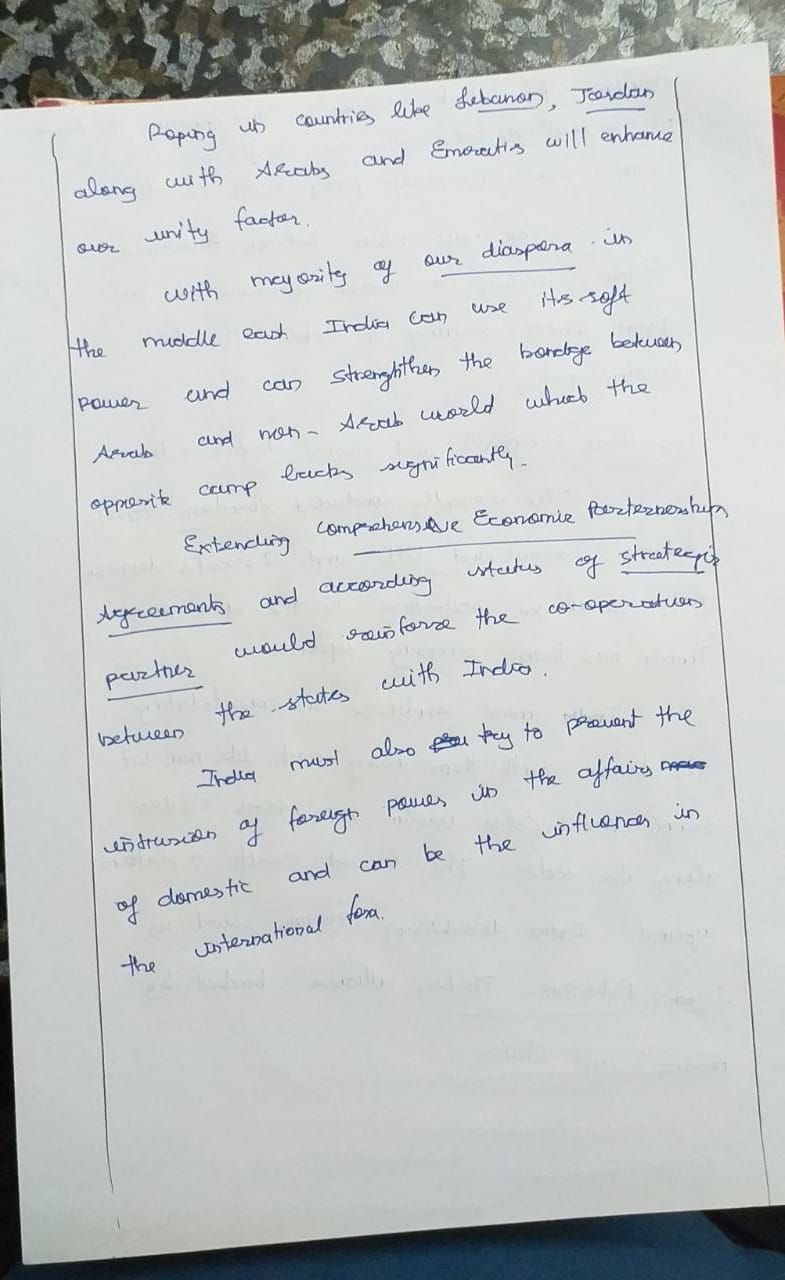 Roping in countries like Lebanon, Jordan
along with Arabs and Emoratis will enhance
our unity factor.
With majority of our diaspora in
the middle east India can use its soft
power and can strenghthen the bondage between
Arab and non- Arab world which the
opposite camp lacks significantly.
Extending Comprehensive Economic Parternership
Agreements and according status of strategic
partner would reinforce the co-operation
between the states with India.
India must also try to prevent the
intrusion of foreign power in the affairs
of domestic and can be the influencer in
the international fora.